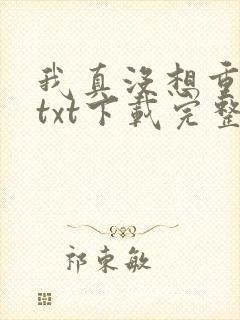 我真没想重
txt下载完整
祁东敏